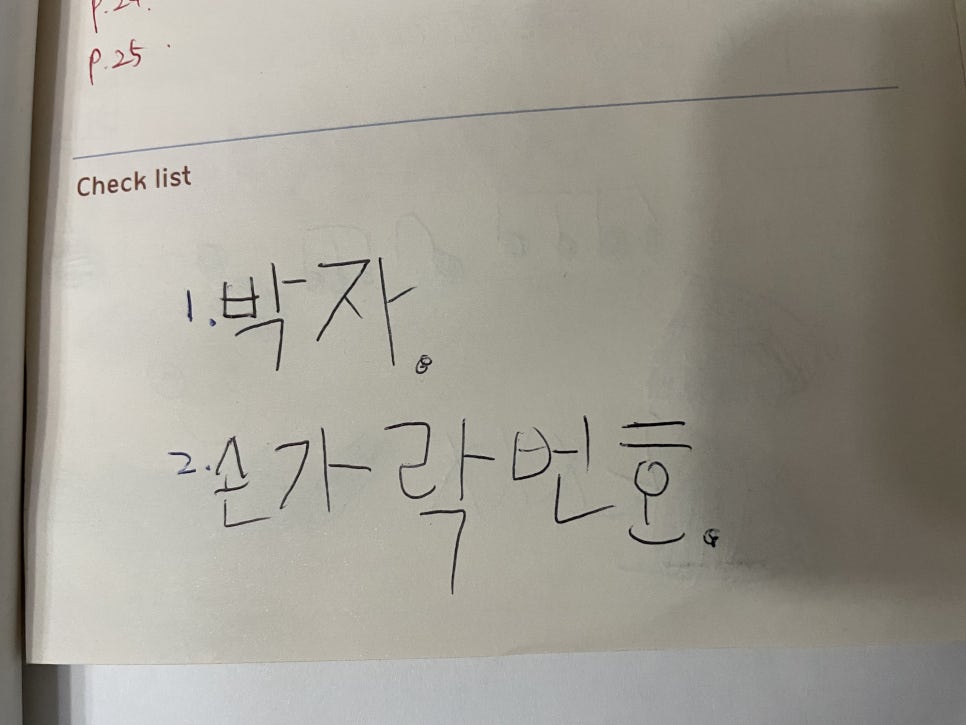 p.24.
p.25
Check list
1. 박자.
2. 손가락번호.